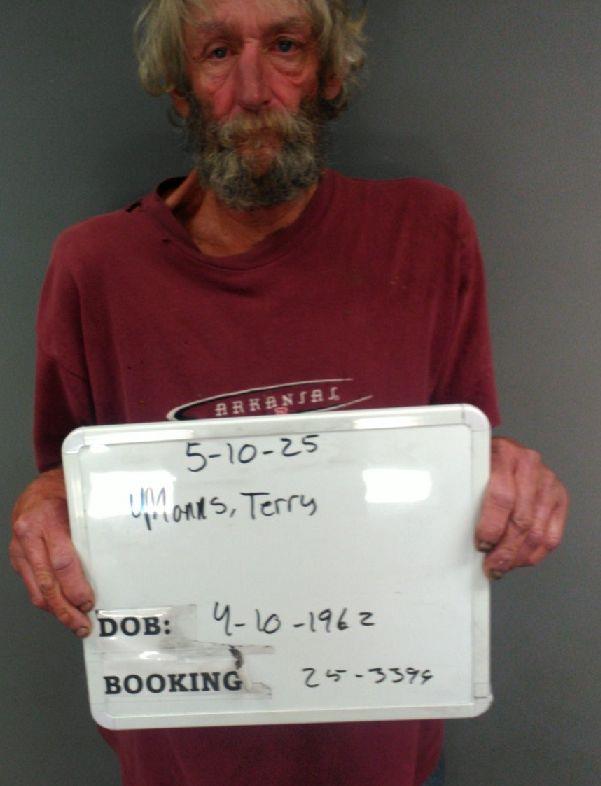 ARKANSAS
5-10-25
Manns, Terry
DOB: 4-10-1962
BOOKING 25-3394